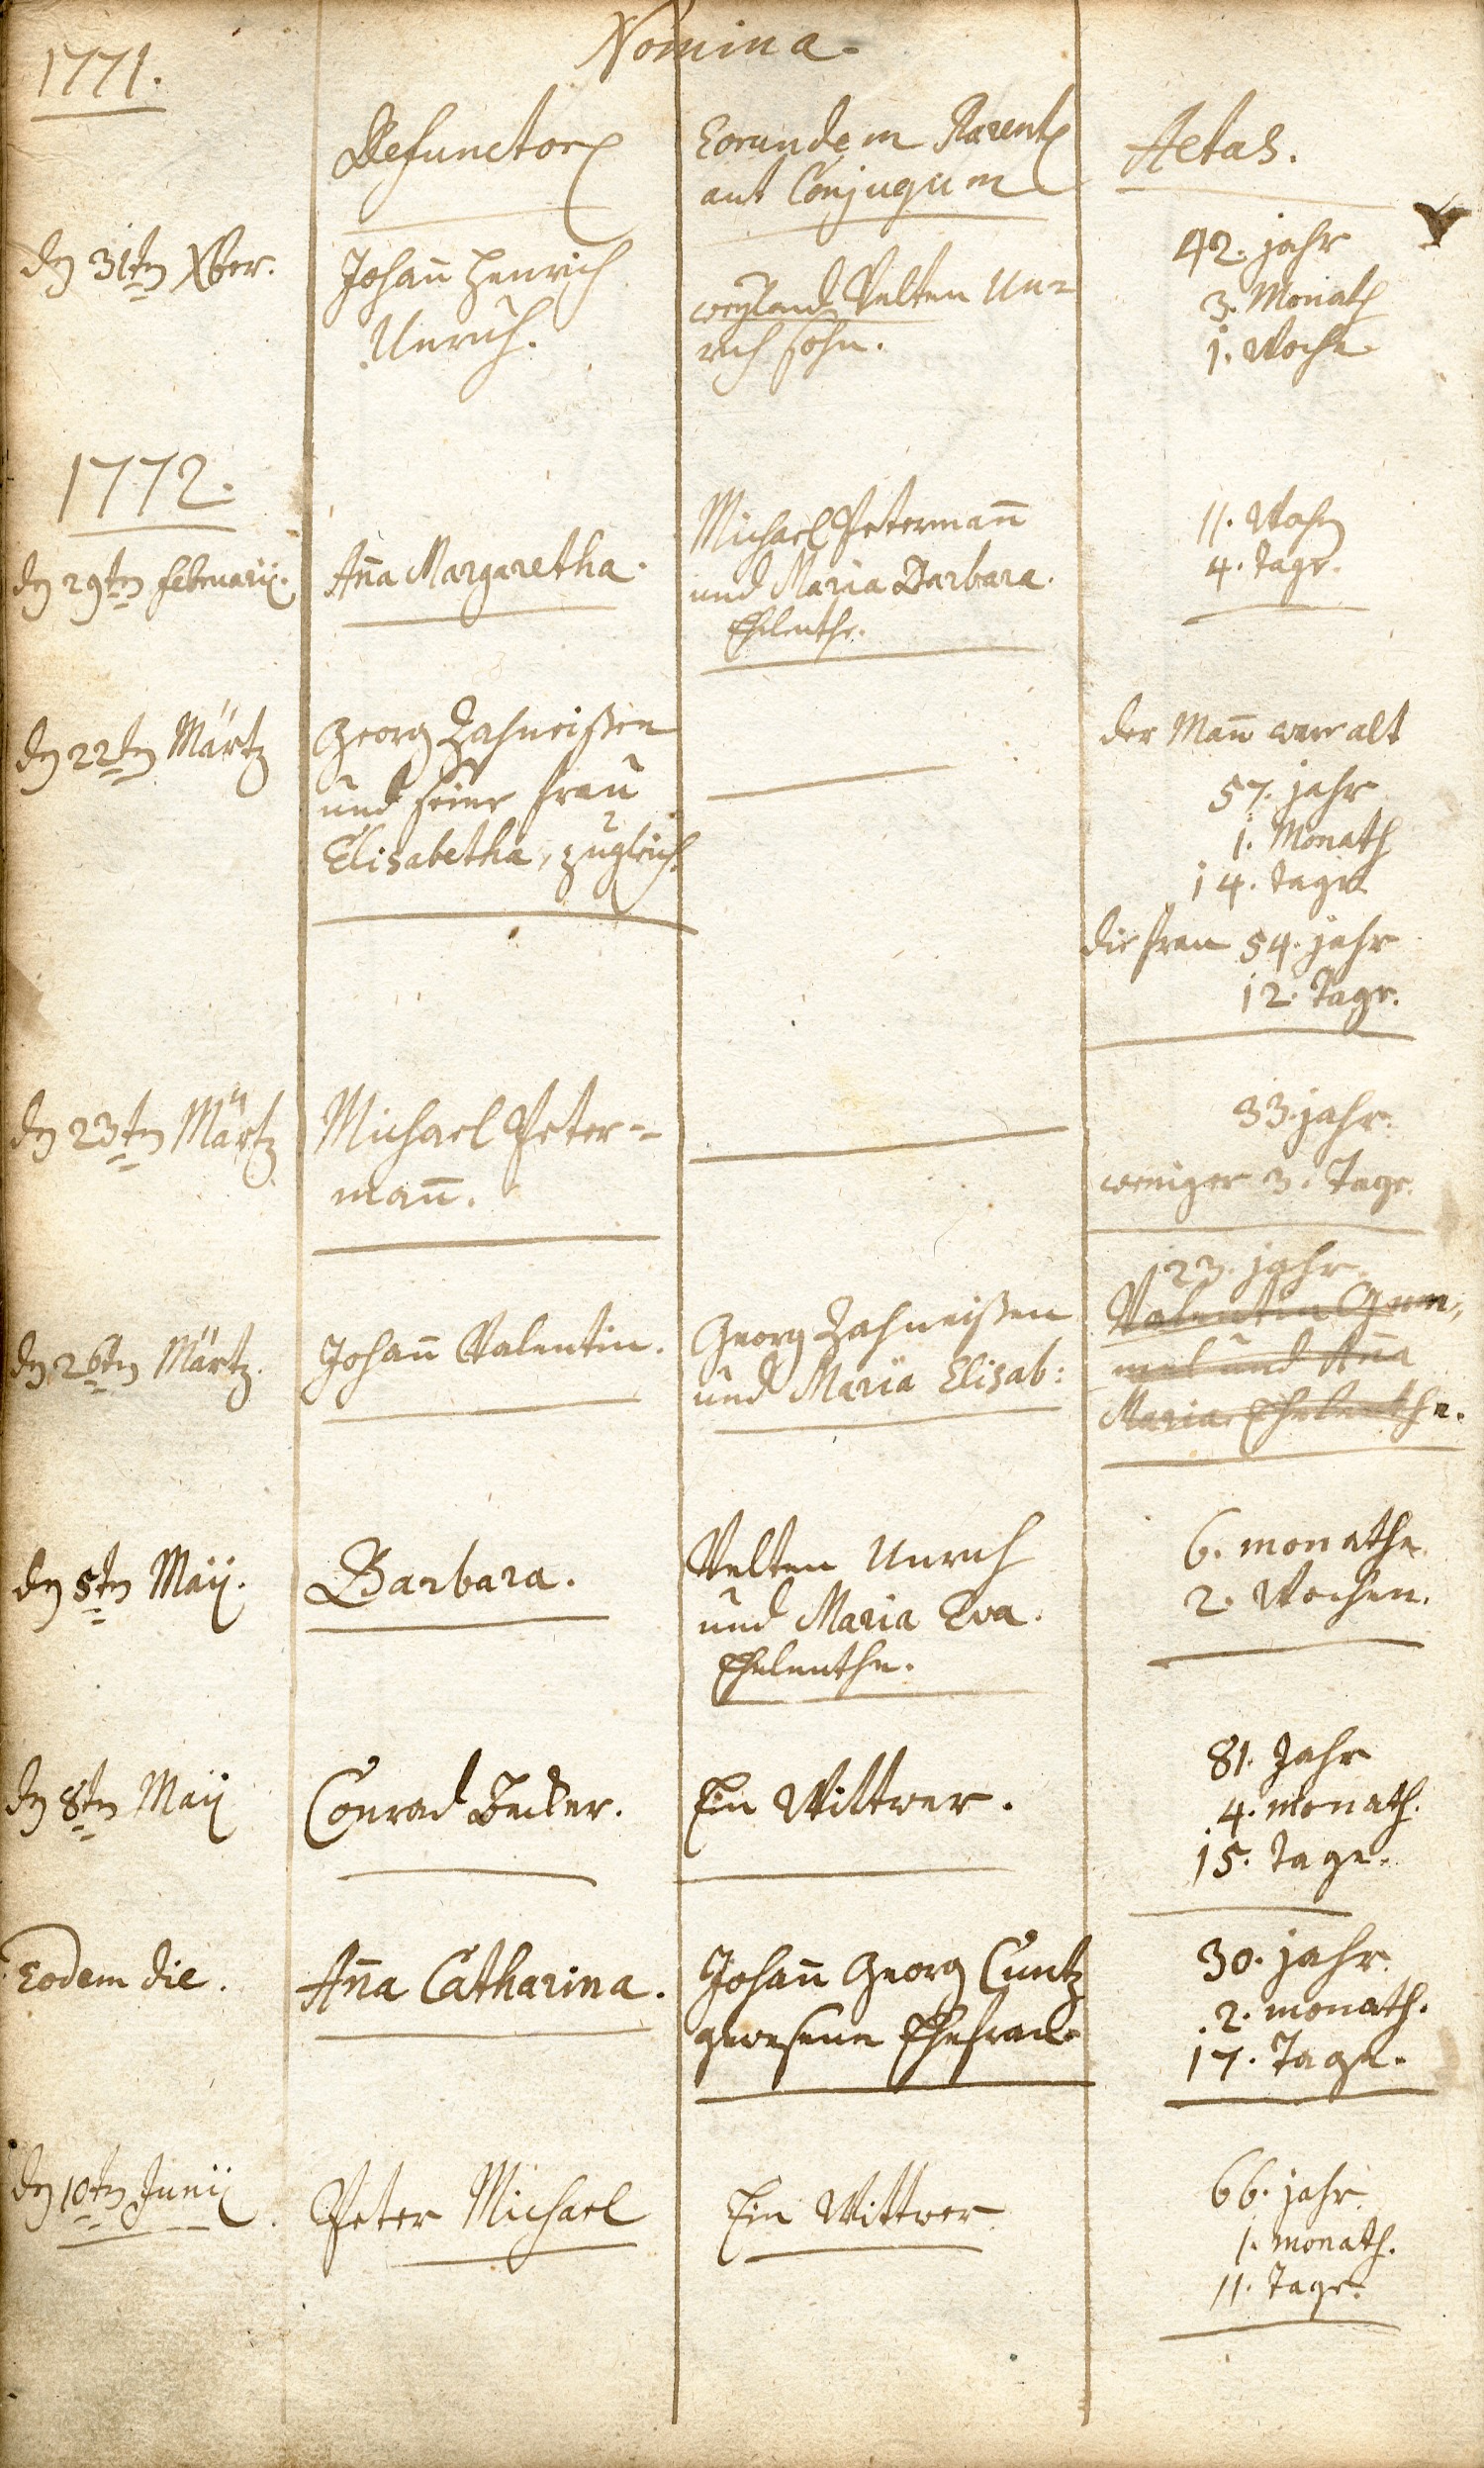 Nomina.
1771.
Defunctor
Eorundem Parent
aut Conjugum
Aetas.
den 31ten Xber.
Johan̄ Henrich
Unruh.
weyland Velten Un=
ruh sohn.
42. jahr
3. Monath
1. Woche
1772.
den 29ten Februarii.
Añna Margaretha.
Michael Peterman̄
und Maria Barbara.
Eheleuthe.
11. Wochen
4. Tage.
den 22ten Märtz
Georg Zahneißen
und seine Frau
Elisabetha, zugleich.
der Man̄ war alt
57. jahr
1. Monath
14. tage
die frau 54. jahr
12. Tage.
den 23ten Märtz
Michael Peter=
man̄.
33. jahr.
weniger 3. Tage.
den 26ten Märtz.
Johan̄ Valentin.
Georg Zahneißen
und Maria Elisab:
23. jahr.
Valentin Gum,
mel und Añna
Maria Eheleuthe.
den 5ten Maij.
Barbara.
Velten Unruh
und Maria Eva.
Eheleuthe.
6. monathe
2. Wochen.
den 8ten Maij
Conrad Becker.
Ein Wittwer.
81. Jahr
4. monath.
15. tage.
Eodem die.
Añna Catharina.
Johan̄ Georg Cuntz
gewesene Ehefrau.
30. jahr.
2. monath.
17. Tage.
den 10ten Junij.
Peter Michael
Ein Wittwer
66. jahr.
1. monath.
11. Tage.